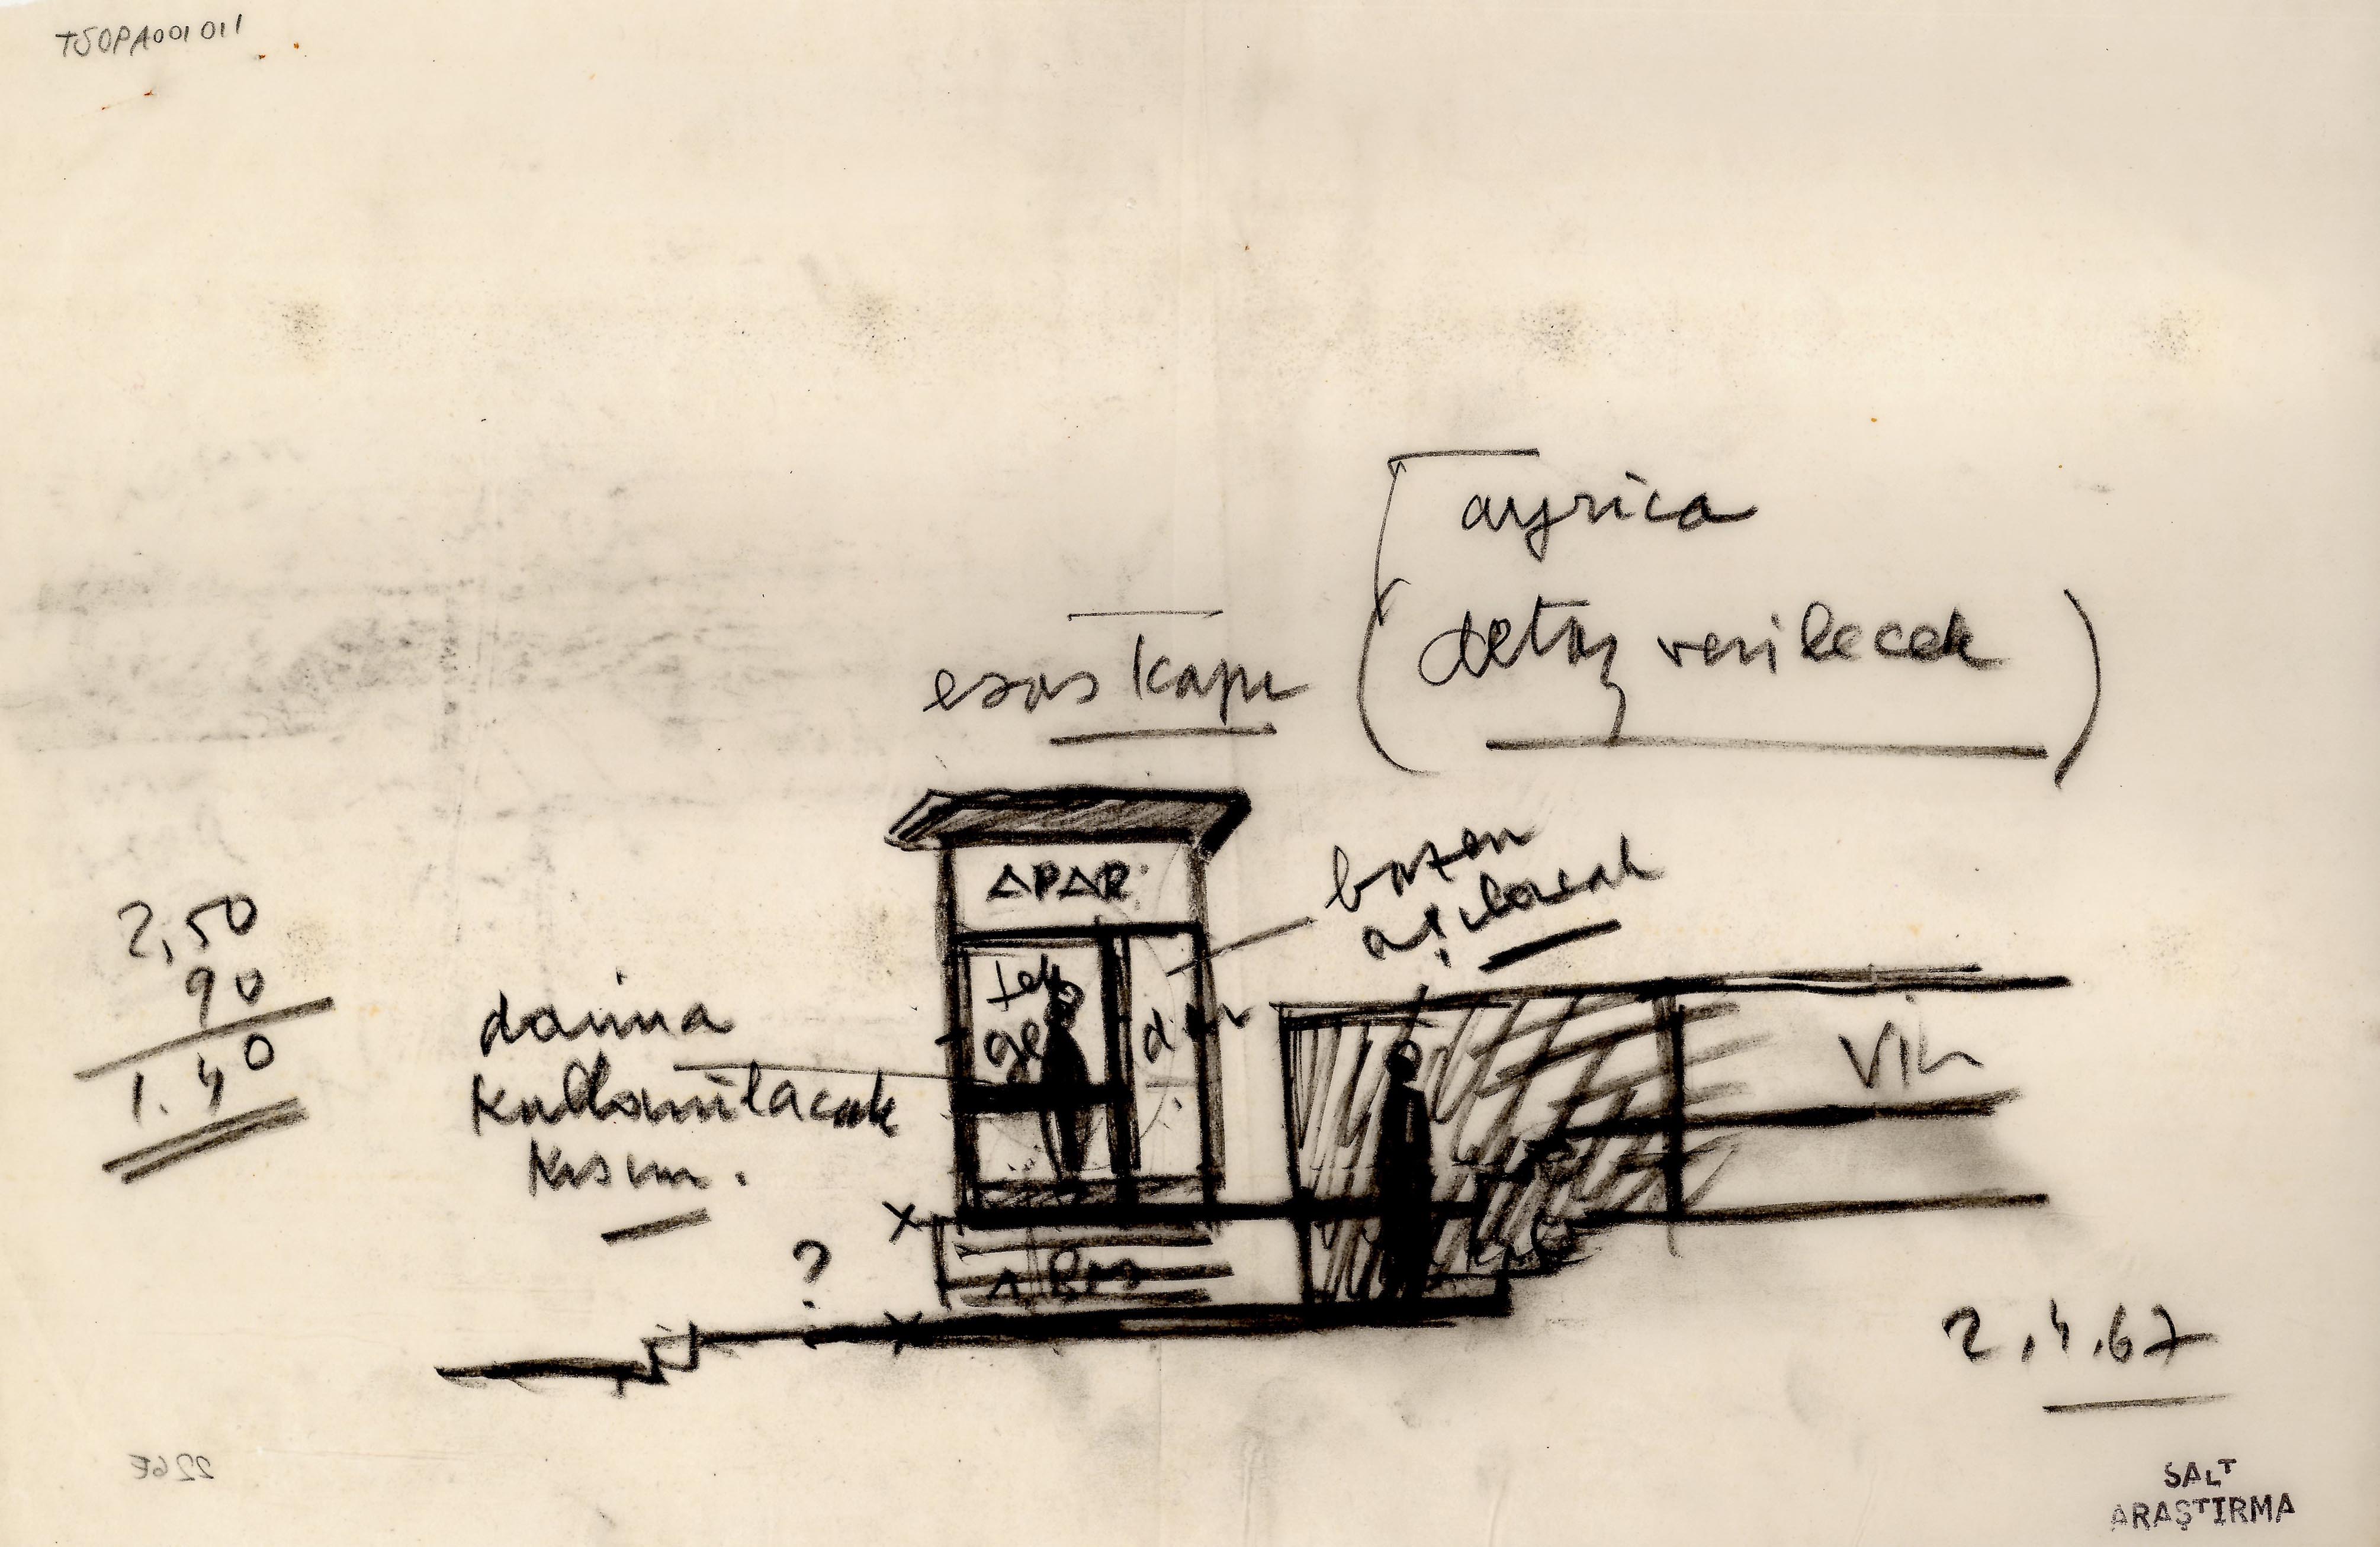 TSOPA001011
ayrıca
esas kapı
(detay verilecek)
APAR.
bazen
açılacak
2,50
90
1.40
daima
kullanılacak
kısım.
tek
ge
dar
Vit
x
?
x
2.4.67
226E
SALT
ARAŞTIRMA